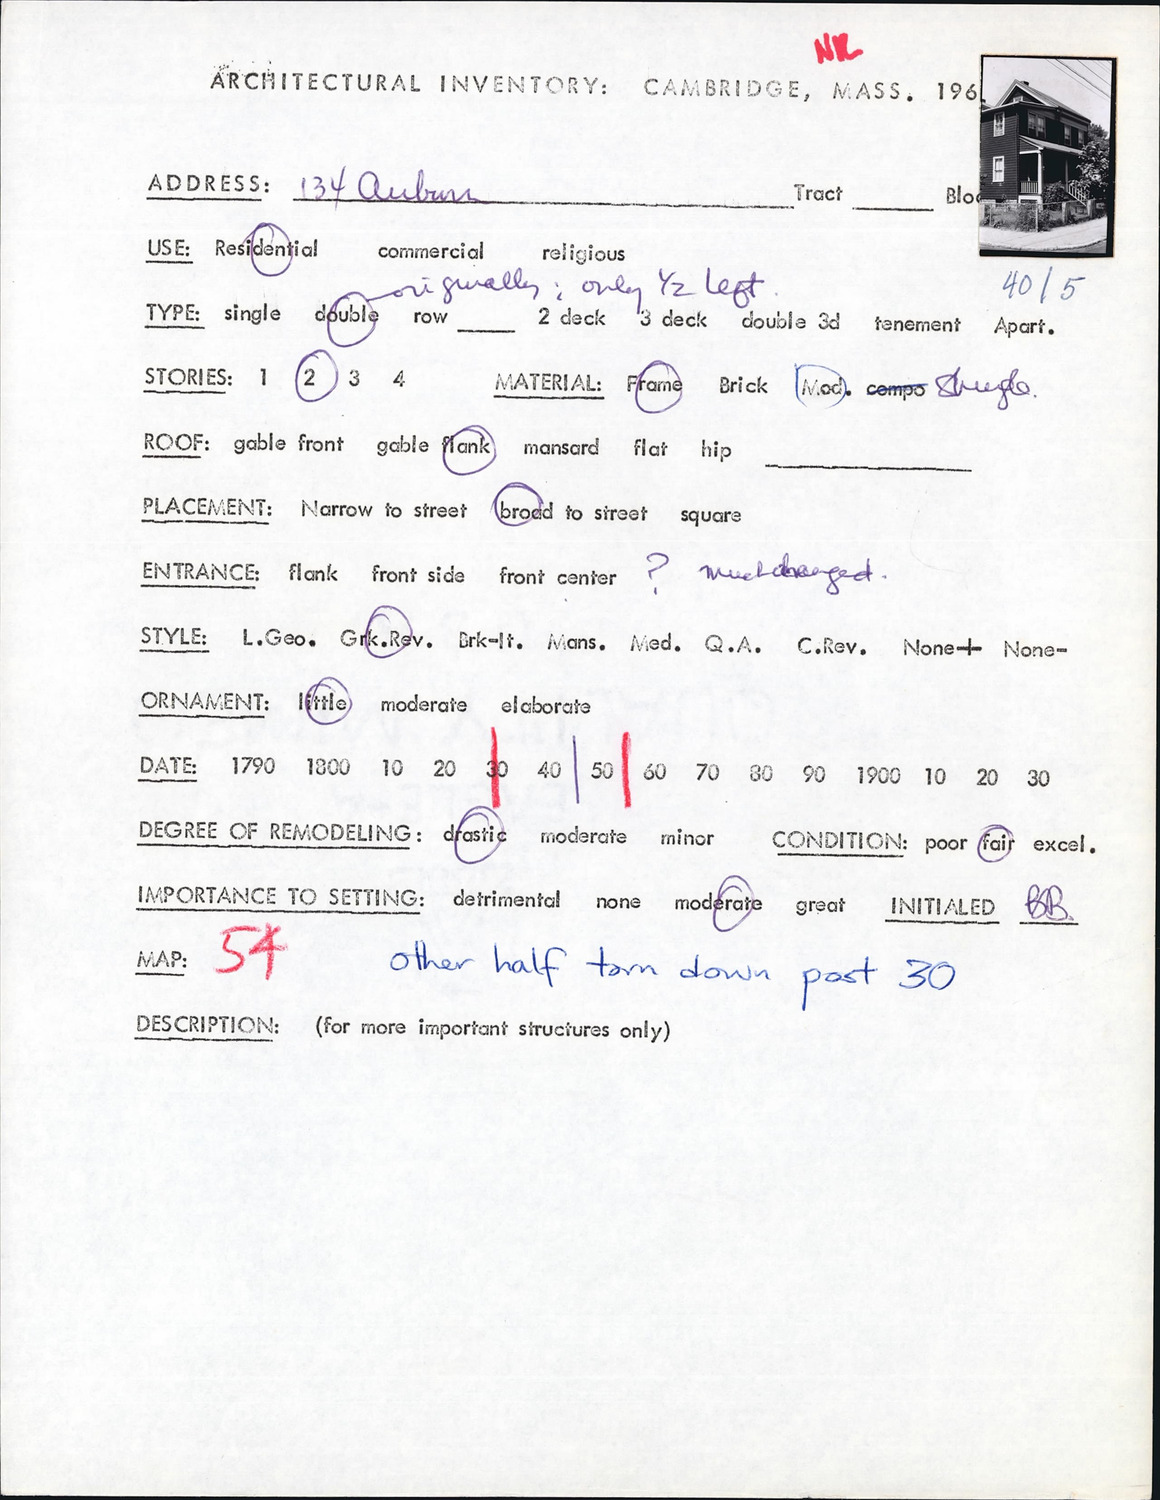 NR
ARCHITECTURAL INVENTORY: CAMBRIDGE, MASS. 196
ADDRESS: 134 Auburn Tract ______ Bloc
USE: Residential commercial religious
originally; only 1/2 left.
40/5
TYPE: single double row ____ 2 deck 3 deck double 3d tenement Apart.
STORIES: 1 2 3 4 MATERIAL: Frame Brick Mod. compo Shingle.
ROOF: gable front gable flank mansard flat hip ____________
PLACEMENT: Narrow to street broad to street square
ENTRANCE: flank front side front center ? much changed.
STYLE: L.Geo. Grk.Rev. Brk-It. Mans. Med. Q.A. C.Rev. None+ None-
ORNAMENT: little moderate elaborate
DATE: 1790 1800 10 20 30 40 50 60 70 80 90 1900 10 20 30
DEGREE OF REMODELING: drastic moderate minor CONDITION: poor fair excel.
IMPORTANCE TO SETTING: detrimental none moderate great INITIALED BB.
MAP: 54 other half torn down post 30
DESCRIPTION: (for more important structures only)